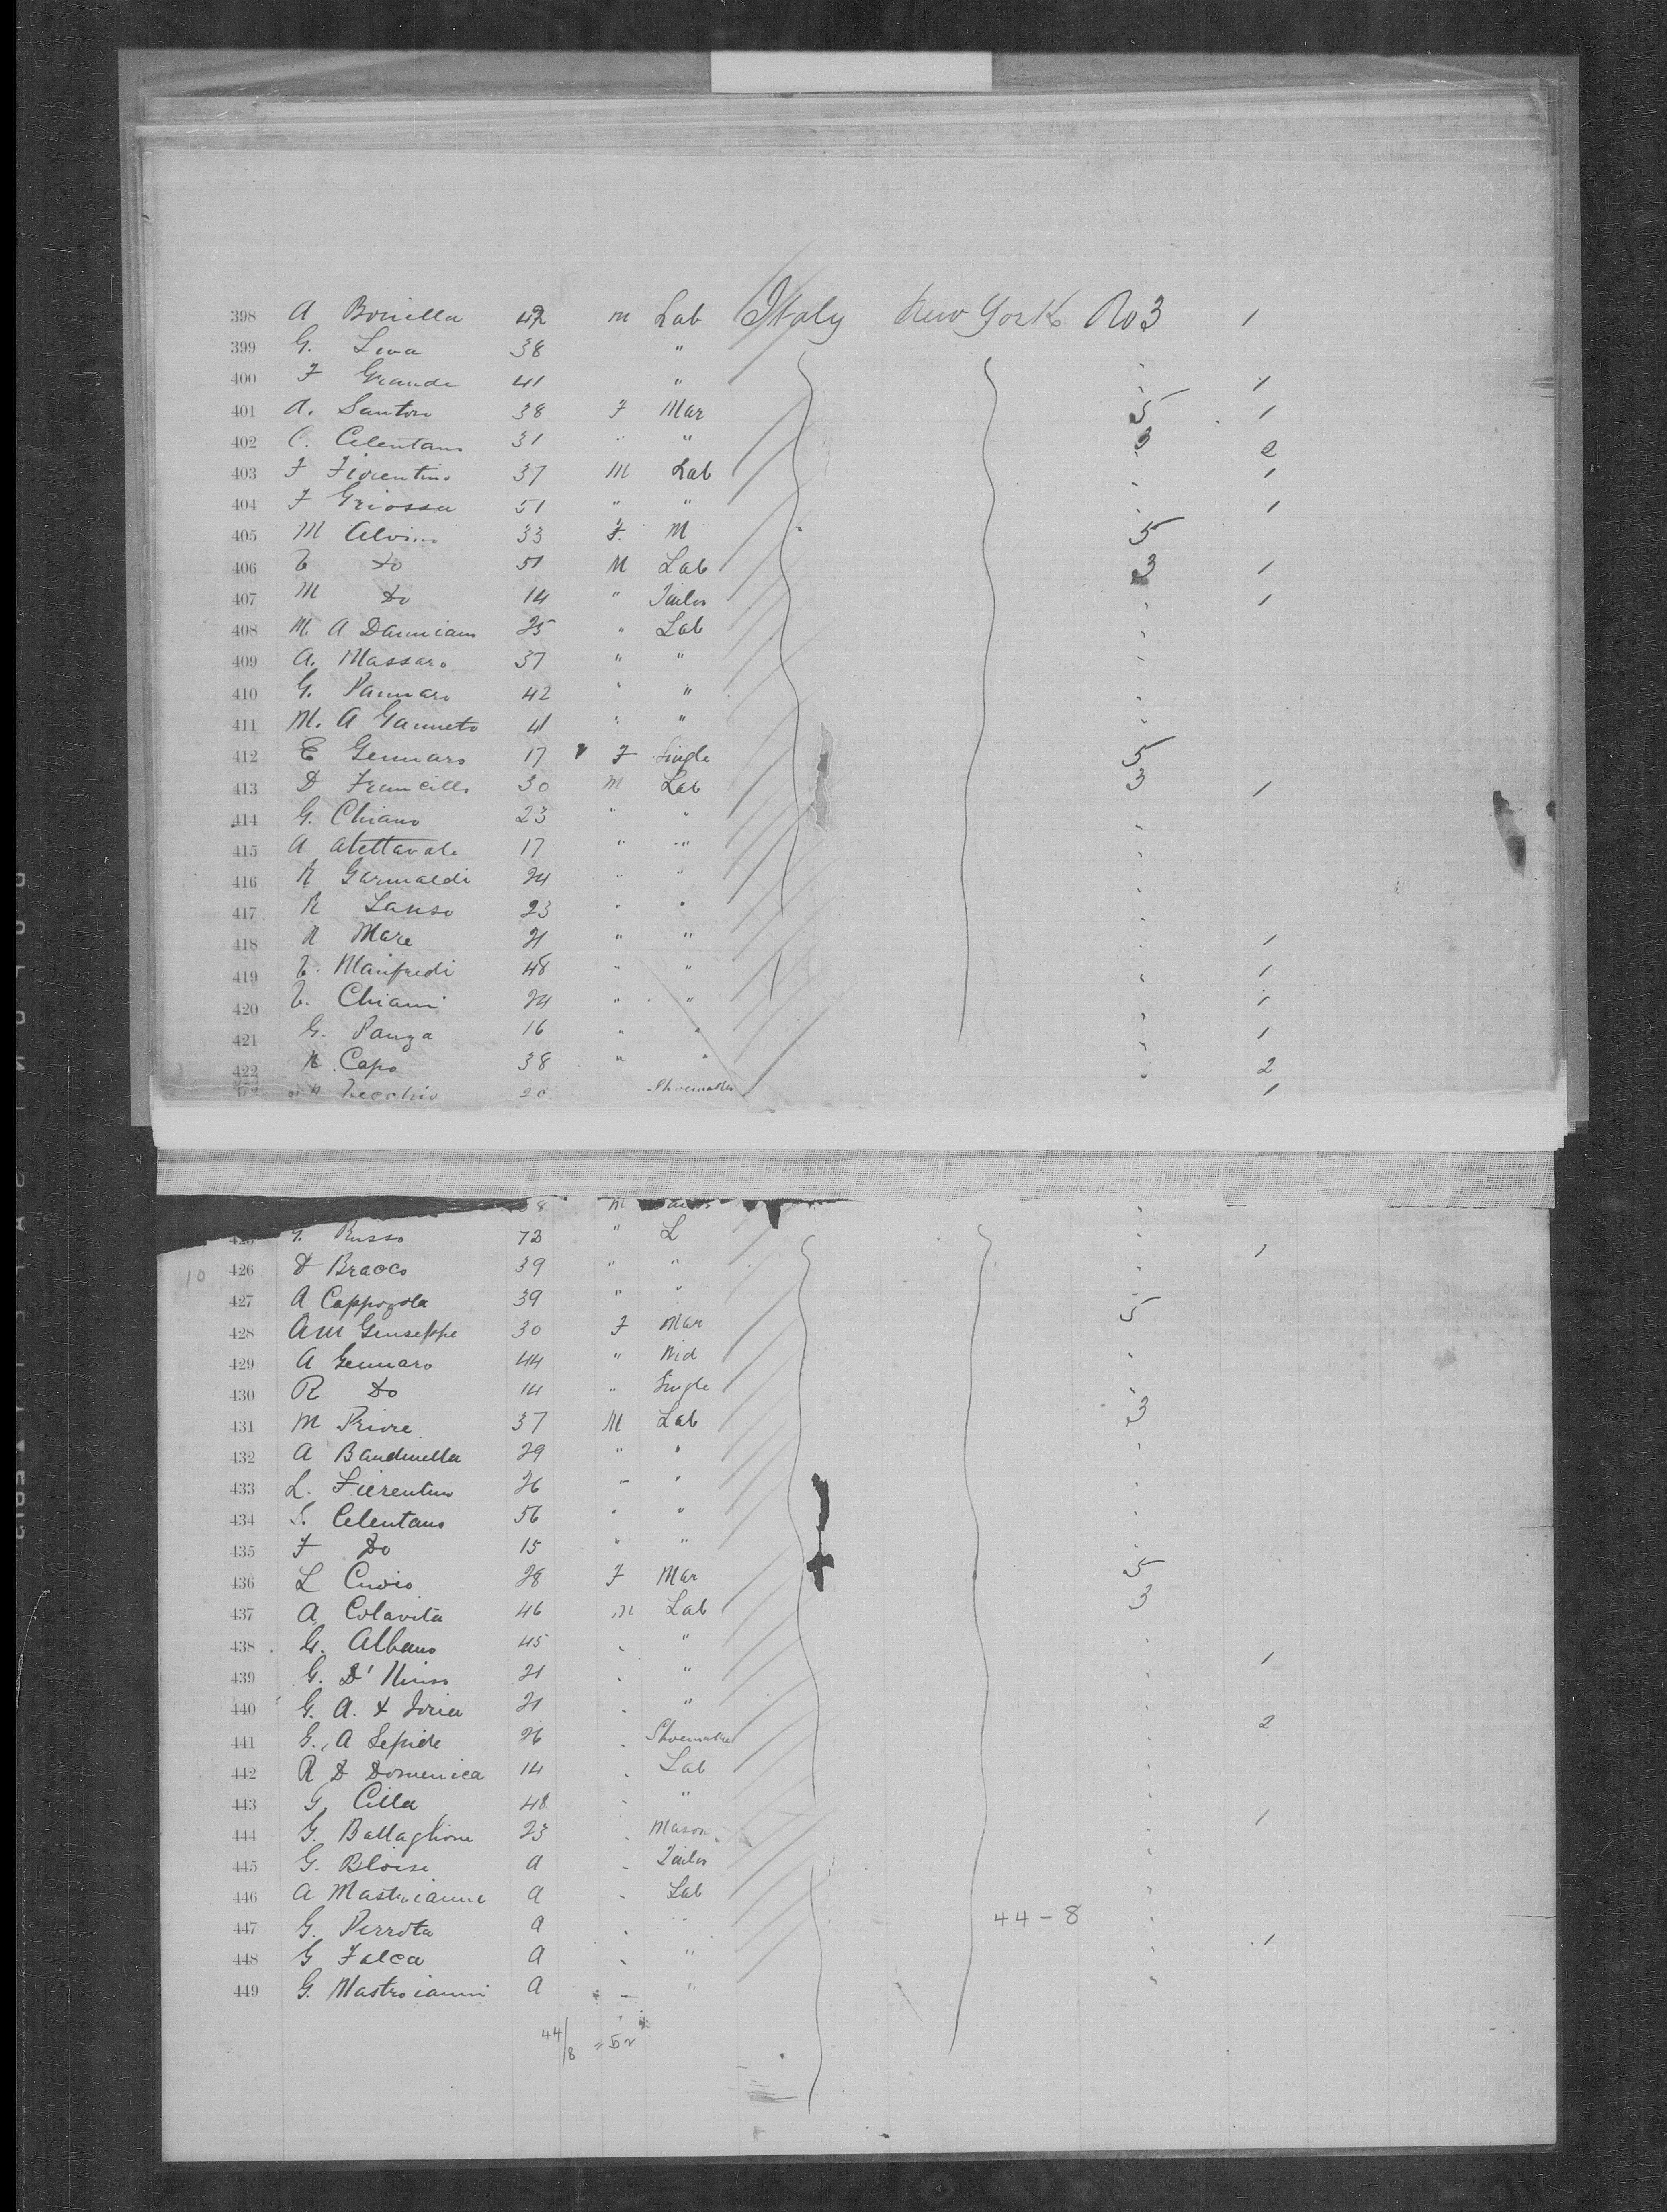 398 A Bonella 42 m Lab Italy New York No 3 1
399 G. Leva 38 "
400 F Grande 41 " 1
401 A. Santoro 38 F Mar 5 1
402 C. Celentano 31 " " 3 2
403 F Fiorentino 37 M Lab 1
404 F Griossa 51 " " 1
405 M Alvino 33 F. M 5
406 Do 51 M Lab 3 1
407 M Do 14 " Tailor 1
408 M. A Damiano 25 " Lab
409 A. Massaro 37 " "
410 G. Pannaro 42 " "
411 M. A Ganneto 41 " "
412 E Gennaro 17 F Single 5
413 D Francillo 30 m Lab 3 1
414 G. Chiano 23 " "
415 A 17 " "
416 R Garmaldi 24 " "
417 R Lanso 23 " "
418 N Mare 21 " " 1
419 Manfredi 48 " " 1
420 Chiani 24 " " 1
421 G. Panza 16 " " 1
422 N. Capo 38 " " 2
Vecchio 20 Shoemaker 1
8 m
Russo 73 " L
10 426 D Bracco 39 " " 1
427 A Cappozola 39 " "
428 AM Giuseppe 30 F Mar 5
429 A Gennaro 44 " Wid
430 R Do 14 " Single
431 M Priore 37 M Lab 3
432 A Bandinella 29 " "
433 L. Fierentino 26 " "
434 S. Celentano 56 " "
435 F Do 15 " "
436 L Cuoio 28 F Mar 5
437 A Colavita 46 m Lab 3
438 G. Albano 45 " "
439 G. D'Niniso 21 " " 1
440 G. A. 21 " "
441 G. A Lepide 26 " Shoemaker 2
442 R D Domenica 14 " Lab
443 G. Cilla 48 " "
444 G. Battaglione 23 " Mason 1
445 G. Bloise a " Tailor
446 A Mastroianni a " Lab
447 G. Perrota a " " 44-8
448 G Falca a " " 1
449 G. Mastroianni a " "
44/8 = 52